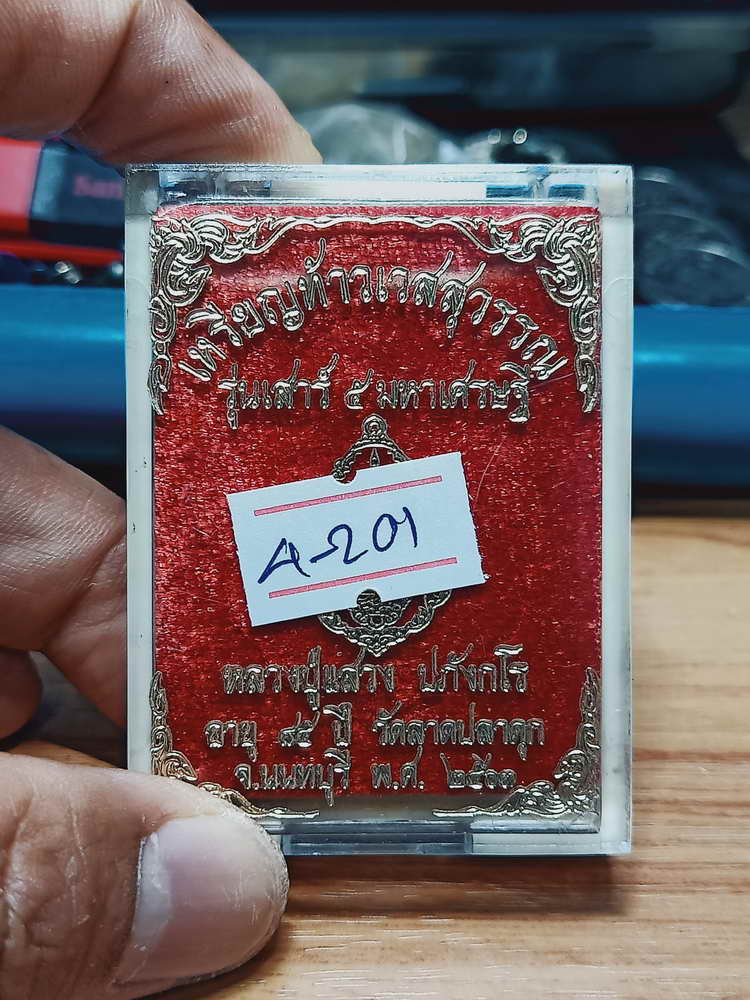 San
เหรียญท้าวเวสสุวรรณ
รุ่นเสาร์ ๕ มหาเศรษฐี
A-201
หลวงปู่แสวง ปภังกโร
อายุ ๘๕ ปี วัดลาดปลาดุก
จ.นนทบุรี พ.ศ. ๒๕๖๓